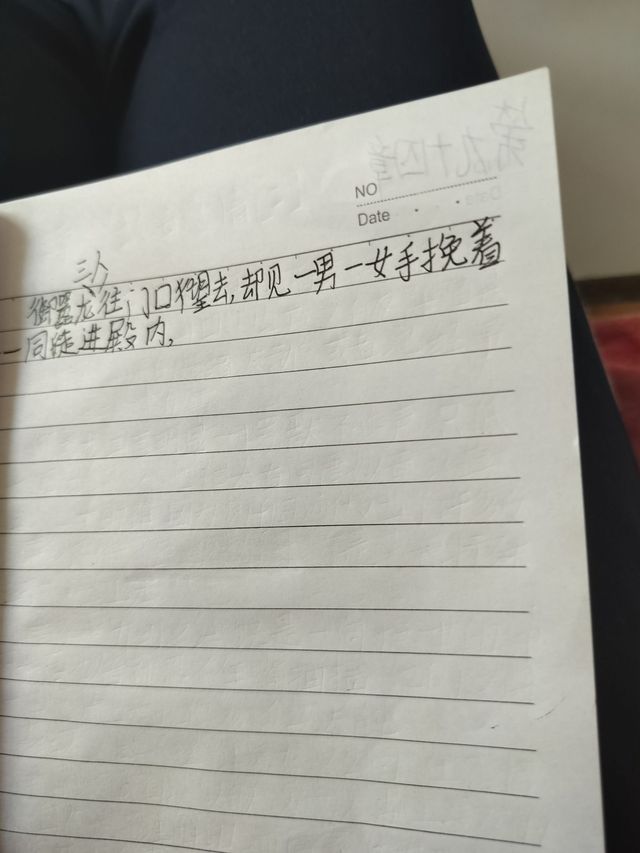 NO
Date
三人
龙往门口望去,却见一男一女手挽着
一同徒进殿内。